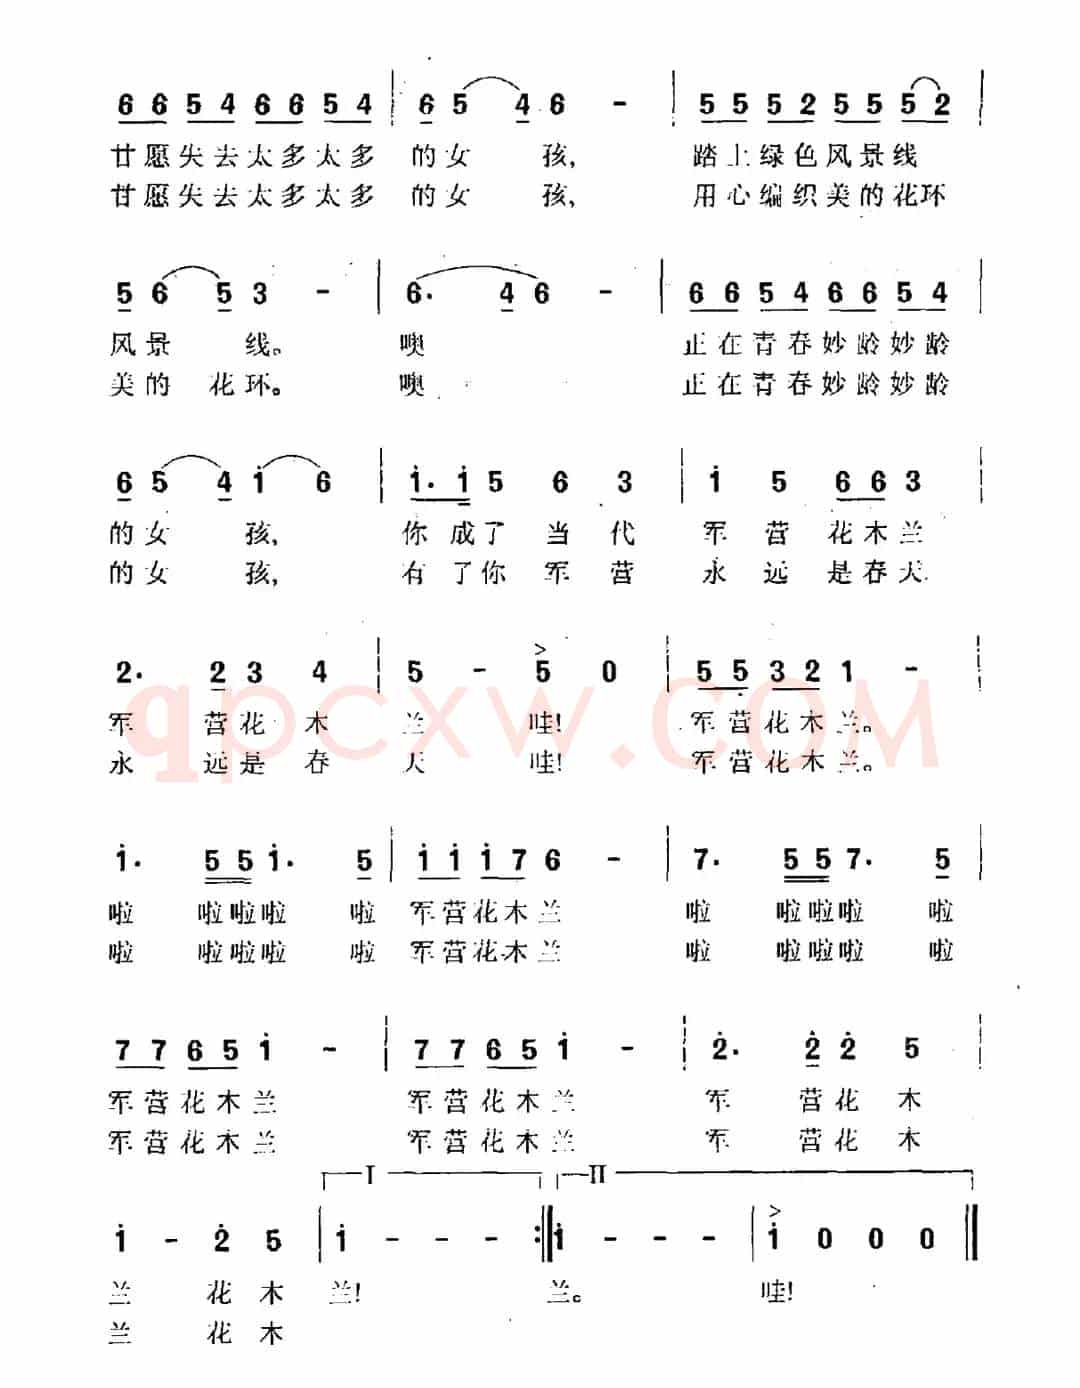 6 6 5 4 6 6 5 4 | 6 5 4 6 - | 5 5 5 2 5 5 5 2 |
甘愿失去太多太多 的女 孩, 踏上绿色风景线
甘愿失去太多太多 的女 孩, 用心编织美的花环
5 6 5 3 - | 6. 4 6 - | 6 6 5 4 6 6 5 4 |
风景 线。 噢 正在青春妙龄妙龄
美的 花环。 噢 正在青春妙龄妙龄
6 5 4 i 6 | i. i 5 6 3 | i 5 6 6 3 |
的女 孩, 你成了当代 军营花木兰
的女 孩, 有了你军营 永远是春天
2. 2 3 4 | 5 - > 5 0 | 5 5 3 2 1 - |
军 营花木 兰 哇! 军营花木兰。
永 远是春 天 哇! 军营花木兰。
qpcxw.COM
i. 5 5 i. 5 | i i i 7 6 - | 7. 5 5 7. 5 |
啦 啦啦啦 啦 军营花木兰 啦 啦啦啦 啦
啦 啦啦啦 啦 军营花木兰 啦 啦啦啦 啦
7 7 6 5 i - | 7 7 6 5 i - | 2. 2 2 5 |
军营花木兰 军营花木兰 军 营花木
军营花木兰 军营花木兰 军 营花木
I II
i - 2 5 | i - - - :|| i - - - | > i 0 0 0 ||
兰 花木 兰! 兰。 哇!
兰 花木